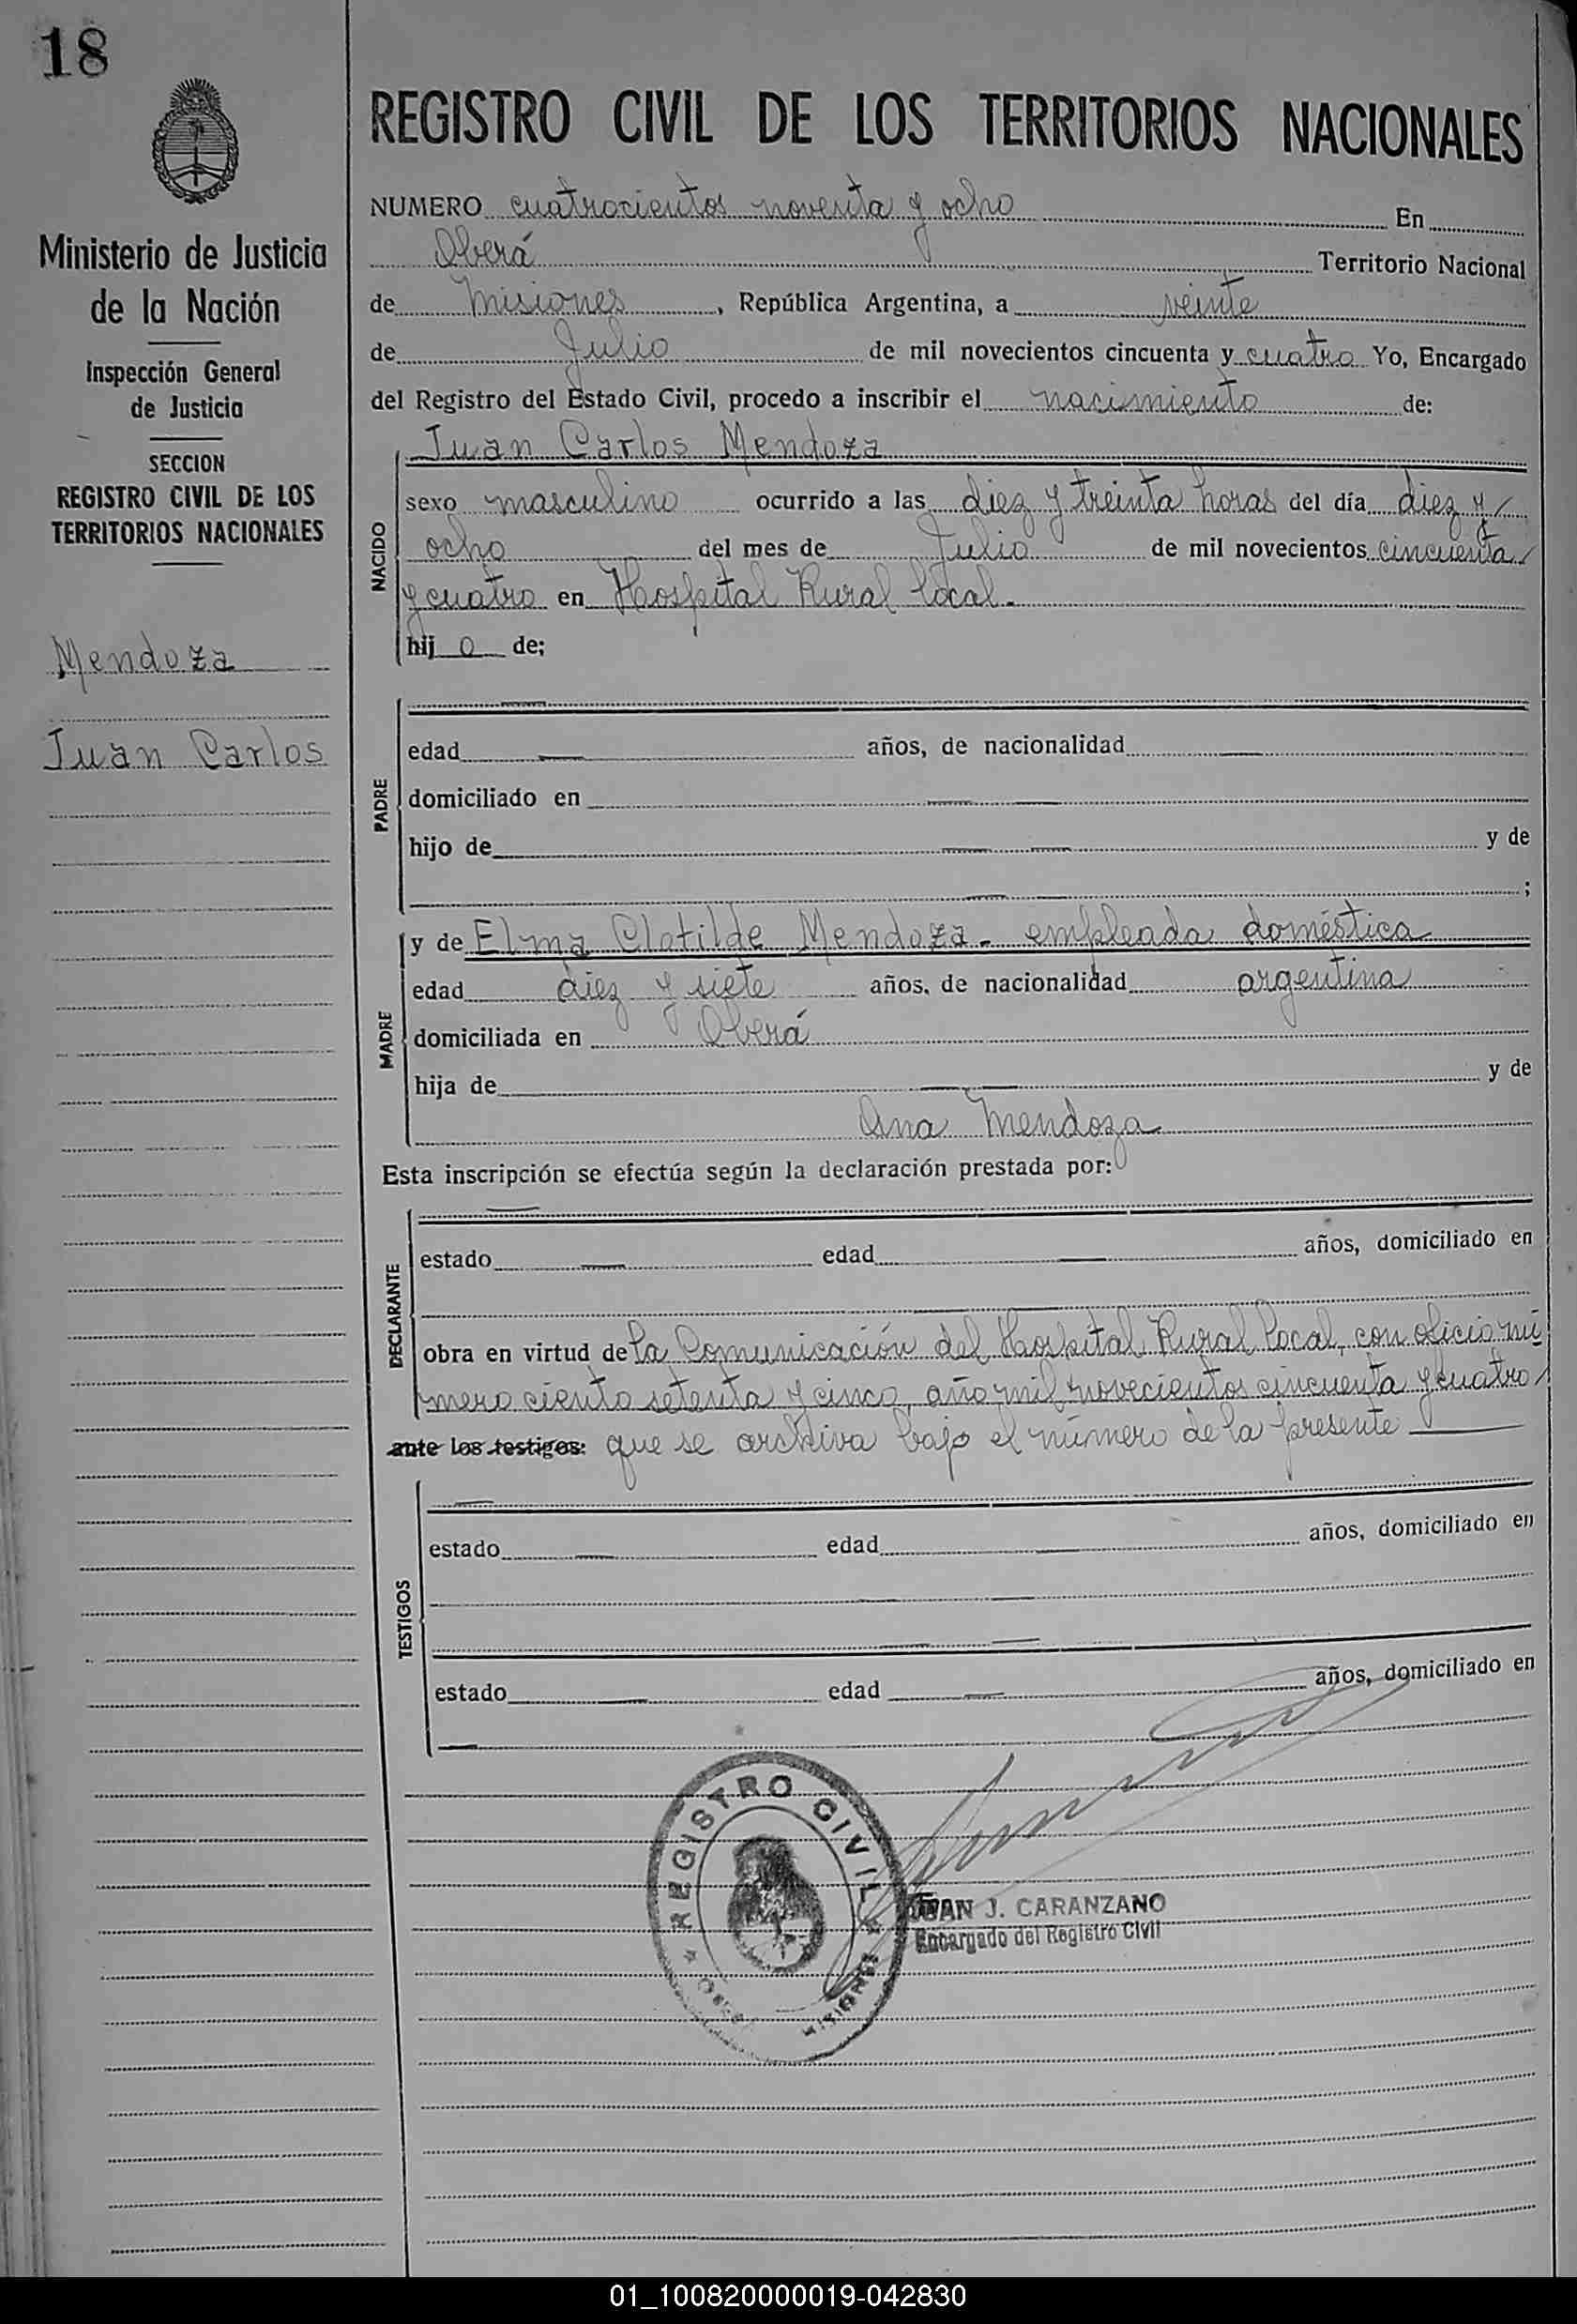 18
REGISTRO CIVIL DE LOS TERRITORIOS NACIONALES
Ministerio de Justicia
de la Nación
Inspección General
de Justicia
SECCION
REGISTRO CIVIL DE LOS
TERRITORIOS NACIONALES
Mendoza
Juan Carlos
NUMERO cuatrocientos noventa y ocho En
Oberá Territorio Nacional
de Misiones, República Argentina, a veinte
de Julio de mil novecientos cincuenta y cuatro Yo, Encargado
del Registro del Estado Civil, procedo a inscribir el nacimiento de:
NACIDO
Juan Carlos Mendoza
sexo masculino ocurrido a las diez y treinta horas del día diez y
ocho del mes de Julio de mil novecientos cincuenta
y cuatro en Hospital Rural local.
hij o de;
PADRE
edad años, de nacionalidad
domiciliado en
hijo de y de
;
MADRE
y de Elma Clotilde Mendoza - empleada doméstica
edad diez y siete años, de nacionalidad argentina
domiciliada en Oberá
hija de y de
Ana Mendoza
Esta inscripción se efectúa según la declaración prestada por:
DECLARANTE
estado edad años, domiciliado en
obra en virtud de la Comunicación del Hospital Rural Local, con oficio nú
mero ciento setenta y cinco, año mil novecientos cincuenta y cuatro
ante los testigos: que se archiva bajo el número de la presente
TESTIGOS
estado edad años, domiciliado en
estado edad años, domiciliado en
REGISTRO CIVIL
MISIONES
JUAN J. CARANZANO
Encargado del Registro Civil
01_100820000019-042830